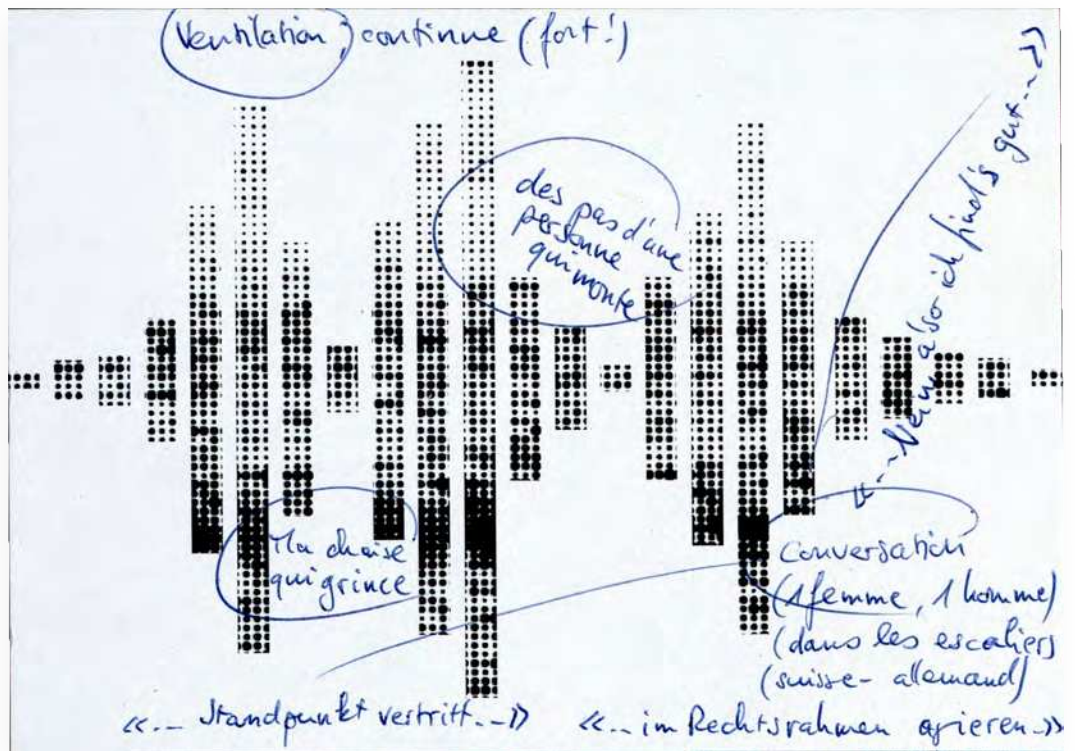 Ventilation, continue (fort!)
des pas d'une
personne
qui monte
«... Nein also ich find's gut...»
Ma chaise
qui grince
Conversation
(1 femme, 1 homme)
(dans les escaliers)
(suisse-allemand)
«... Standpunkt vertritt...»
«... im Rechtsrahmen agieren...»